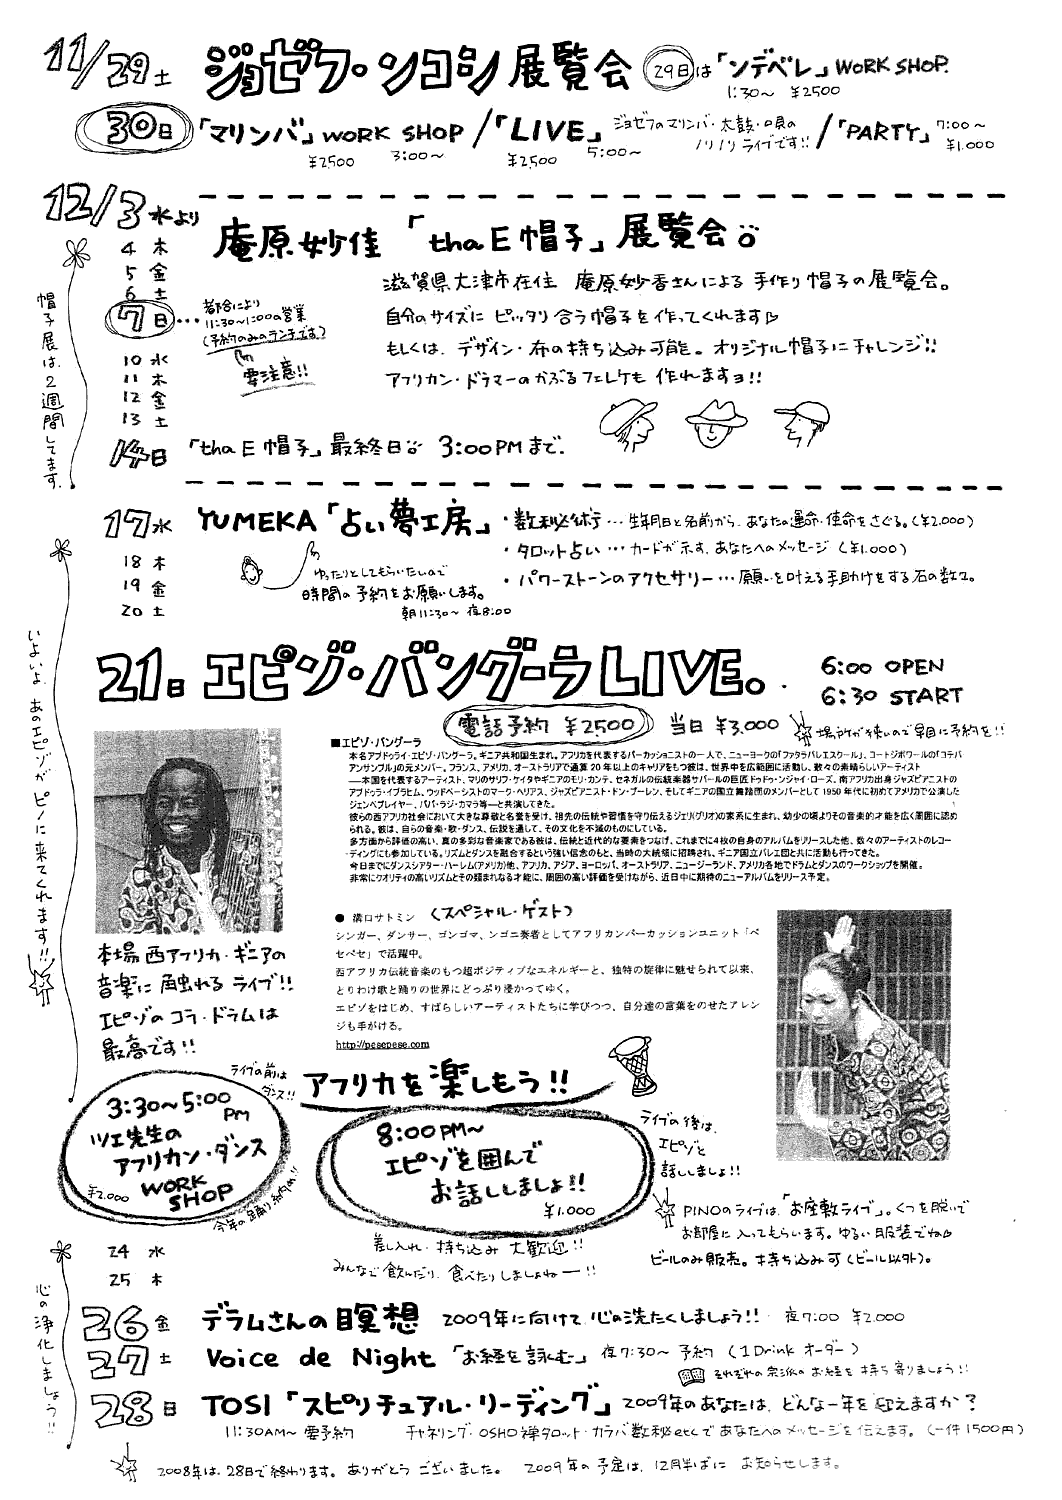 11/29土 ジョゼフ・ンコシ 展覧会 29日は「ンデベレ」WORK SHOP.
1:30～ ¥2500
30日「マリンバ」WORK SHOP /「LIVE」ジョゼフのマリンバ・太鼓・唄の ノリノリライブです!! /「PARTY」7:00～
¥2500 3:00～ ¥2500 5:00～ ¥1.000
12/3水より
庵原妙佳「tha E 帽子」展覧会
4 木
5 金
6 土
7日…
都合により
11:30～1:00の営業
(予約のみのランチです?)
要注意!!
10 水
11 木
12 金
13 土
帽子展は、2週間してます.
滋賀県大津市在住 庵原妙香さんによる 手作り帽子の展覧会。
自分のサイズに ピッタリ合う帽子を作ってくれます
もしくは、デザイン・布の持ち込み可能。オリジナル帽子にチャレンジ!!
アフリカン・ドラマーのかぶるフェレケも 作れますョ!!
14日「tha E 帽子」最終日 3:00PMまで.
17水 YUMEKA「占い夢工房」
18 木
19 金
20 土
ゆったりとしてもらいたいので
時間の予約をお願いします。
朝11:30～夜8:00
・数秘術…生年月日と名前から、あなたの運命・使命をさぐる。(¥2.000)
・タロット占い…カードが示す、あなたへのメッセージ (¥1.000)
・パワーストーンのアクセサリー…願いを叶える手助けをする石の数々。
いよいよ、あのエピゾがピノに来てくれます!!
21日 エピゾ・バングーラ LIVE。
6:00 OPEN
6:30 START
電話予約 ¥2500 当日 ¥3.000 場所が狭いので早目に予約を!!
■エピゾ・バングーラ
本名アブドゥライ・エピゾ・バングーラ。ギニア共和国生まれ。アフリカを代表するパーカッショニストの一人で、ニューヨークの「ファタラバレエスクール」、コートジボワールの「コテバ
アンサンブル」の元メンバー。フランス、アメリカ、オーストラリアで通算20年以上のキャリアをもつ彼は、世界中を広範囲に活動し、数々の素晴らしいアーティスト
―本国を代表するアーティスト、マリのサリフ・ケイタやギニアのモリ・カンテ、セネガルの伝統楽器サバールの巨匠ドゥドゥ・ンジャイ・ローズ、南アフリカ出身ジャズピアニストの
アブドゥラ・イブラヒム、ウッドベーシストのマーク・ヘリアス、ジャズピアニスト・ドン・プーレン、そしてギニアの国立舞踏団のメンバーとして1950年代に初めてアメリカで公演した
ジェンベプレイヤー、パパ・ラジ・カマラ等―と共演してきた。
彼らの西アフリカ社会において大きな尊敬と名誉を受け、祖先の伝統や習慣を守り伝えるジェリ(グリオ)の家系に生まれ、幼少の頃よりその音楽的才能を広く周囲に認め
られる。彼は、自らの音楽・歌・ダンス、伝説を通して、その文化を不滅のものにしている。
多方面から評価の高い、真の多彩な音楽家である彼は、伝統と近代的な要素をつなげ、これまでに4枚の自身のアルバムをリリースした他、数々のアーティストのレコー
ディングにも参加している。リズムとダンスを融合するという強い信念のもと、当時の大統領に招聘され、ギニア国立バレエ団と共に活動も行ってきた。
今日までにダンスシアター・ハーレム(アメリカ)他、アフリカ、アジア、ヨーロッパ、オーストラリア、ニュージーランド、アメリカ各地でドラムとダンスのワークショップを開催。
非常にクオリティの高いリズムとその類まれなる才能に、周囲の高い評価を受けながら、近日中に期待のニューアルバムをリリース予定。
● 溝口サトミン (スペシャル・ゲスト)
シンガー、ダンサー、ゴンゴマ、ンゴニ奏者としてアフリカンパーカッションユニット「ペ
セペセ」で活躍中。
西アフリカ伝統音楽のもつ超ポジティブなエネルギーと、独特の旋律に魅せられて以来、
とりわけ歌と踊りの世界にどっぷり浸かってゆく。
エピゾをはじめ、すばらしいアーティストたちに学びつつ、自分達の言葉をのせたアレン
ジも手がける。
http://pesepese.com
本場 西アフリカ・ギニアの
音楽に 触れる ライブ!!
エピゾのコラ・ドラムは
最高です!!
ライブの前は
ダンス!!
アフリカを楽しもう!!
3:30～5:00 PM
ツエ先生の
アフリカン・ダンス
WORK SHOP
¥2.000
今年の踊り納め!!
8:00PM～
エピゾを囲んで
お話ししましょ!!
¥1.000
ライブの後は、
エピゾと
話ししましょ!!
差し入れ・持ち込み 大歓迎!!
みんなで飲んだり、食べたりしましょねー!!
PINOのライブは、「お座敷ライブ」。くつを脱いで
お部屋に入ってもらいます。ゆるい服装でね
ビールのみ販売。持ち込み可(ビール以外)。
24 水
25 木
心の浄化しましょう!!
26金 デラムさんの瞑想 2009年に向けて、心の洗たくしましょう!! 夜7:00 ¥2.000
27土 Voice de Night「お経を詠む」夜7:30～ 予約 (1Drink オーダー)
それぞれの宗派の お経を 持ち寄りましょう!!
28日 TOSI「スピリチュアル・リーディング」2009年のあなたは、どんな一年を迎えますか?
11:30AM～ 要予約 チャネリング・OSHO禅タロット・カラバ数秘etcで あなたへのメッセージを伝えます。(一件1500円)
2008年は、28日で終わります。ありがとう ございました。 2009年の予定は、12月半ばに お知らせします。